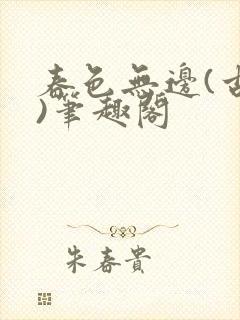 春色無邊(古
)筆趣閣
朱春貴